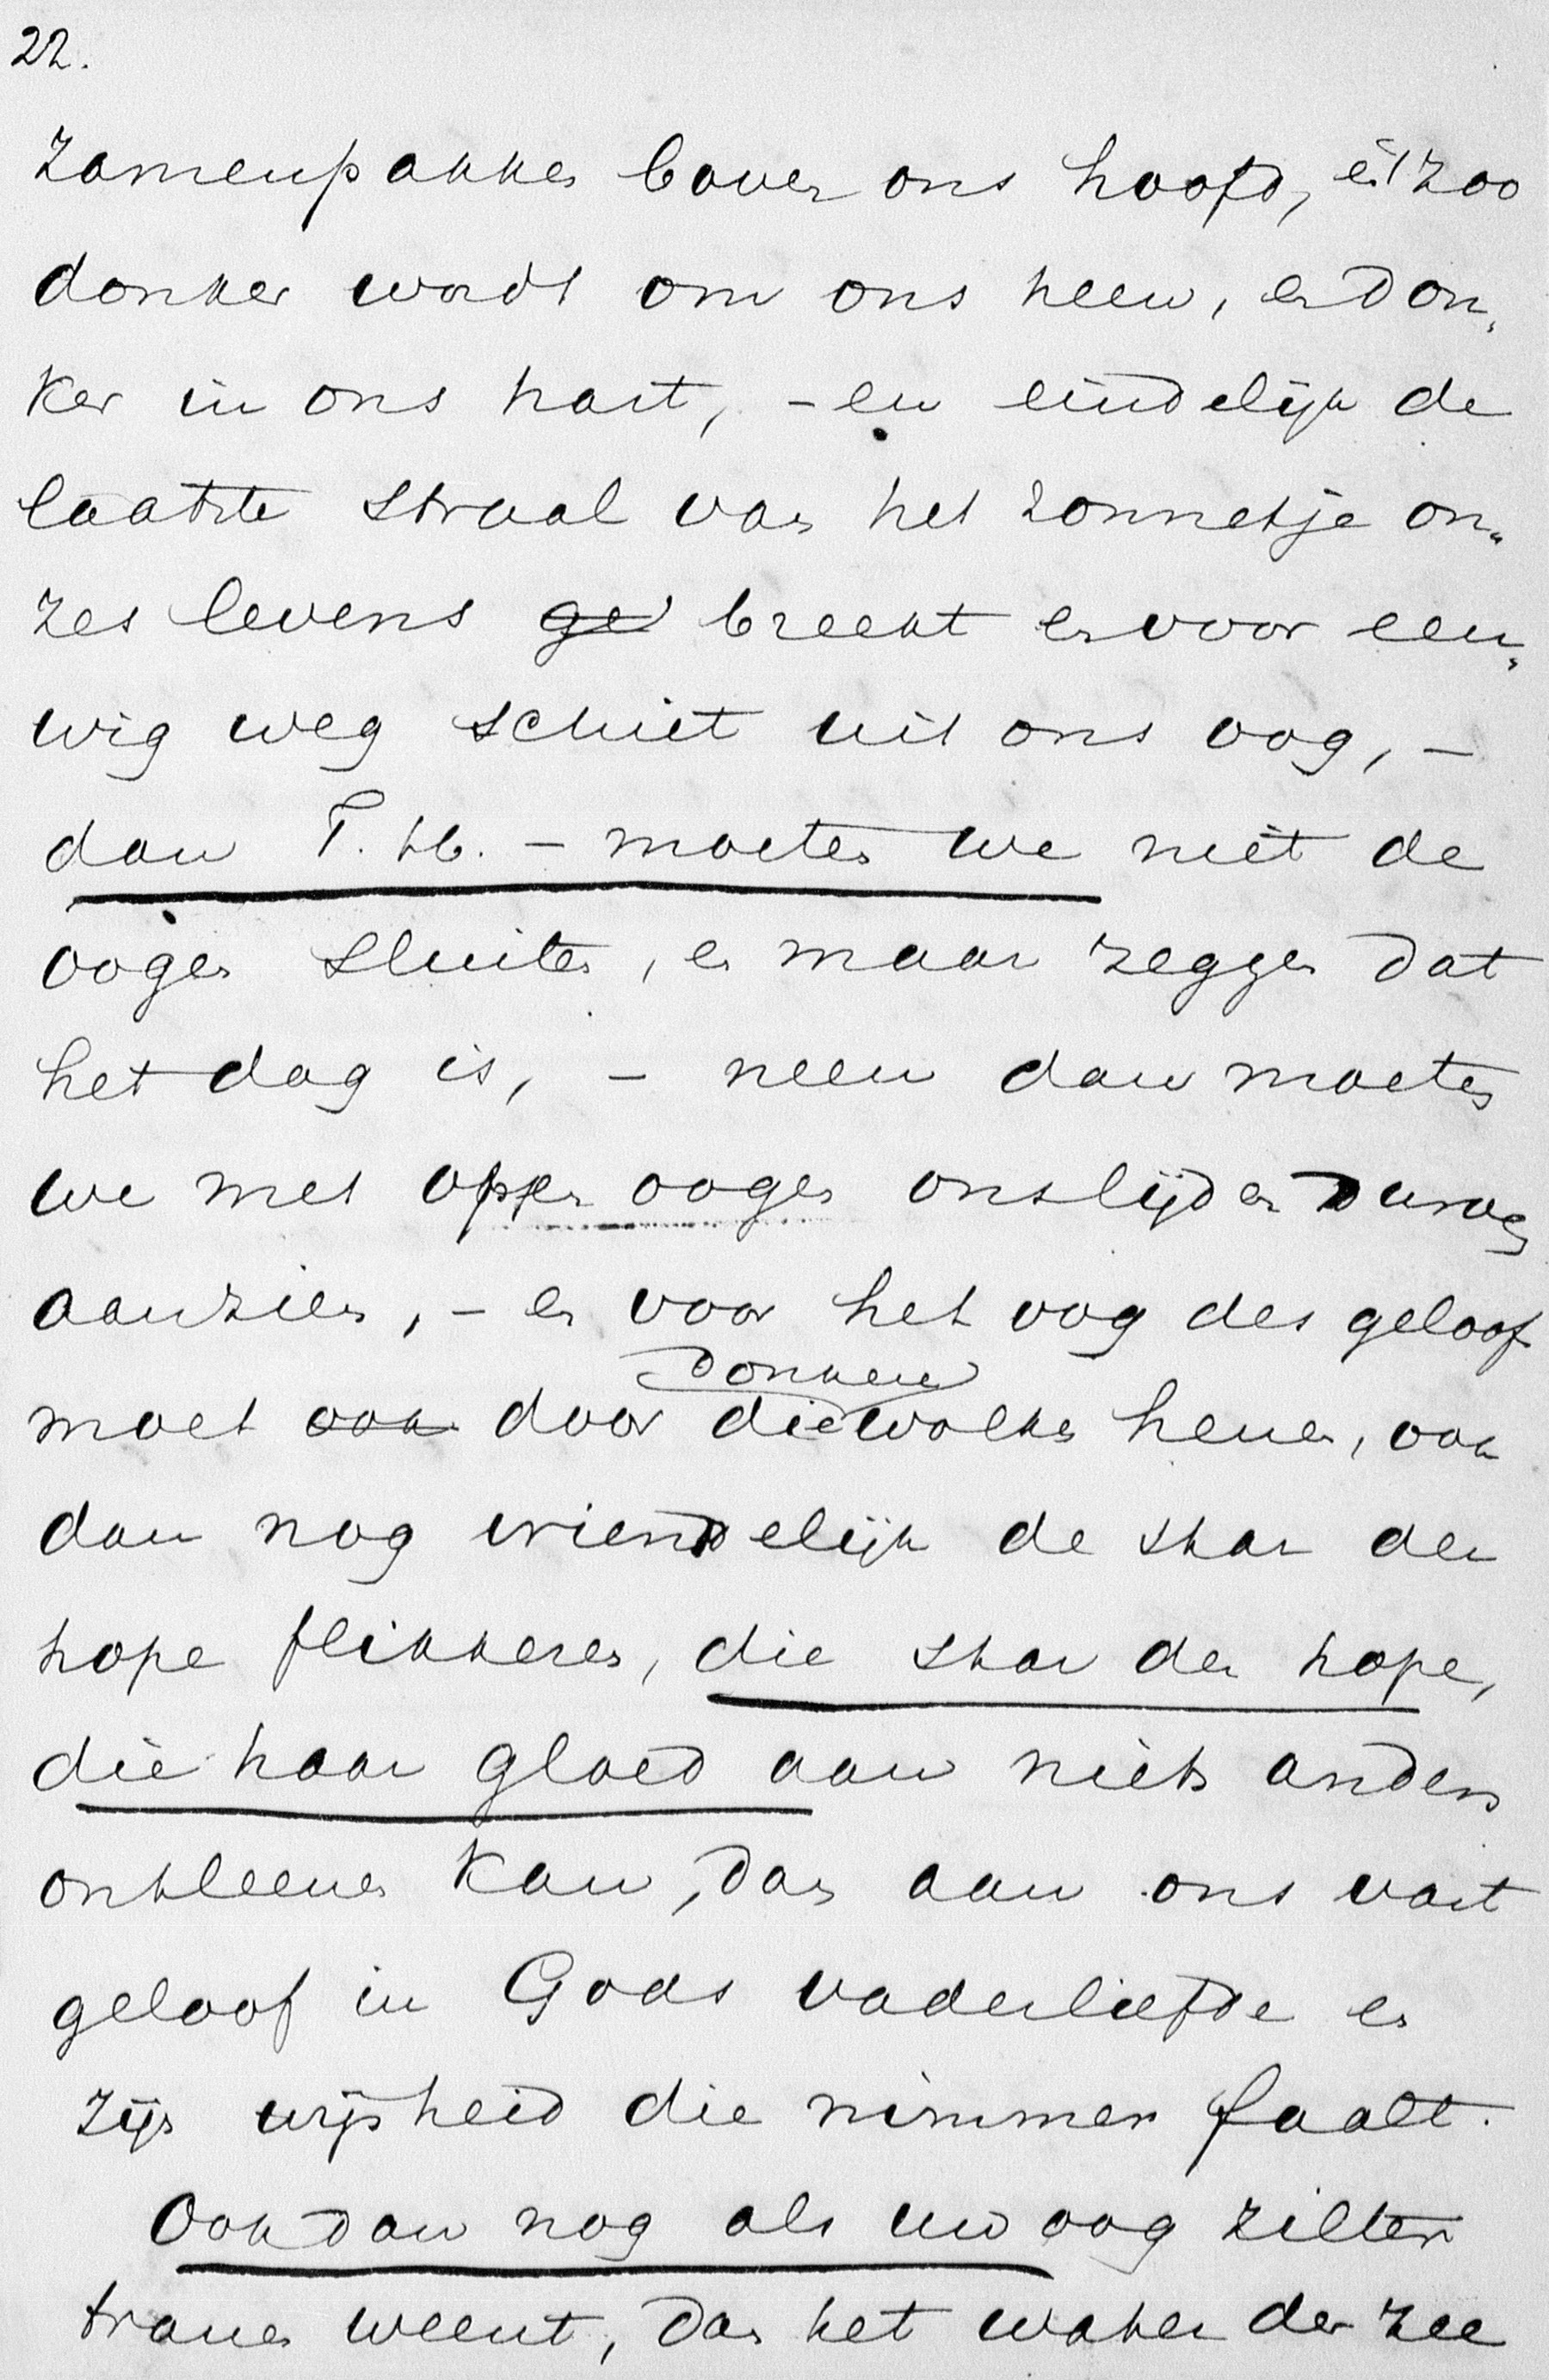 22.
zamenpakken boven ons hoofd, en 't zoo
donker wordt om ons heen, en don„
ker in ons hart, – en eindelijk de
laatste straal van het zonnetje on„
zes levens ge breekt en voor eeu„
wig weg schiet uit ons oog, –
dan T. h. – moeten we niet de
oogen sluiten, en maar zeggen dat
het dag is, – neen dan moeten
we met open oogen ons lijden durven
aanzien, – en voor het oog des geloofs
donkere
moet ook door die wolken henen, ook
dan nog vriendelijk de star der
hope flikkeren, die star der hope,
die haar gloed aan niets anders
ontleenen kan, dan aan ons vast
geloof in Gods vaderliefde en
zijn wijsheid die nimmer faalt.
Ook dan nog als uw oog zilter
tranen weent, dan het water der zee